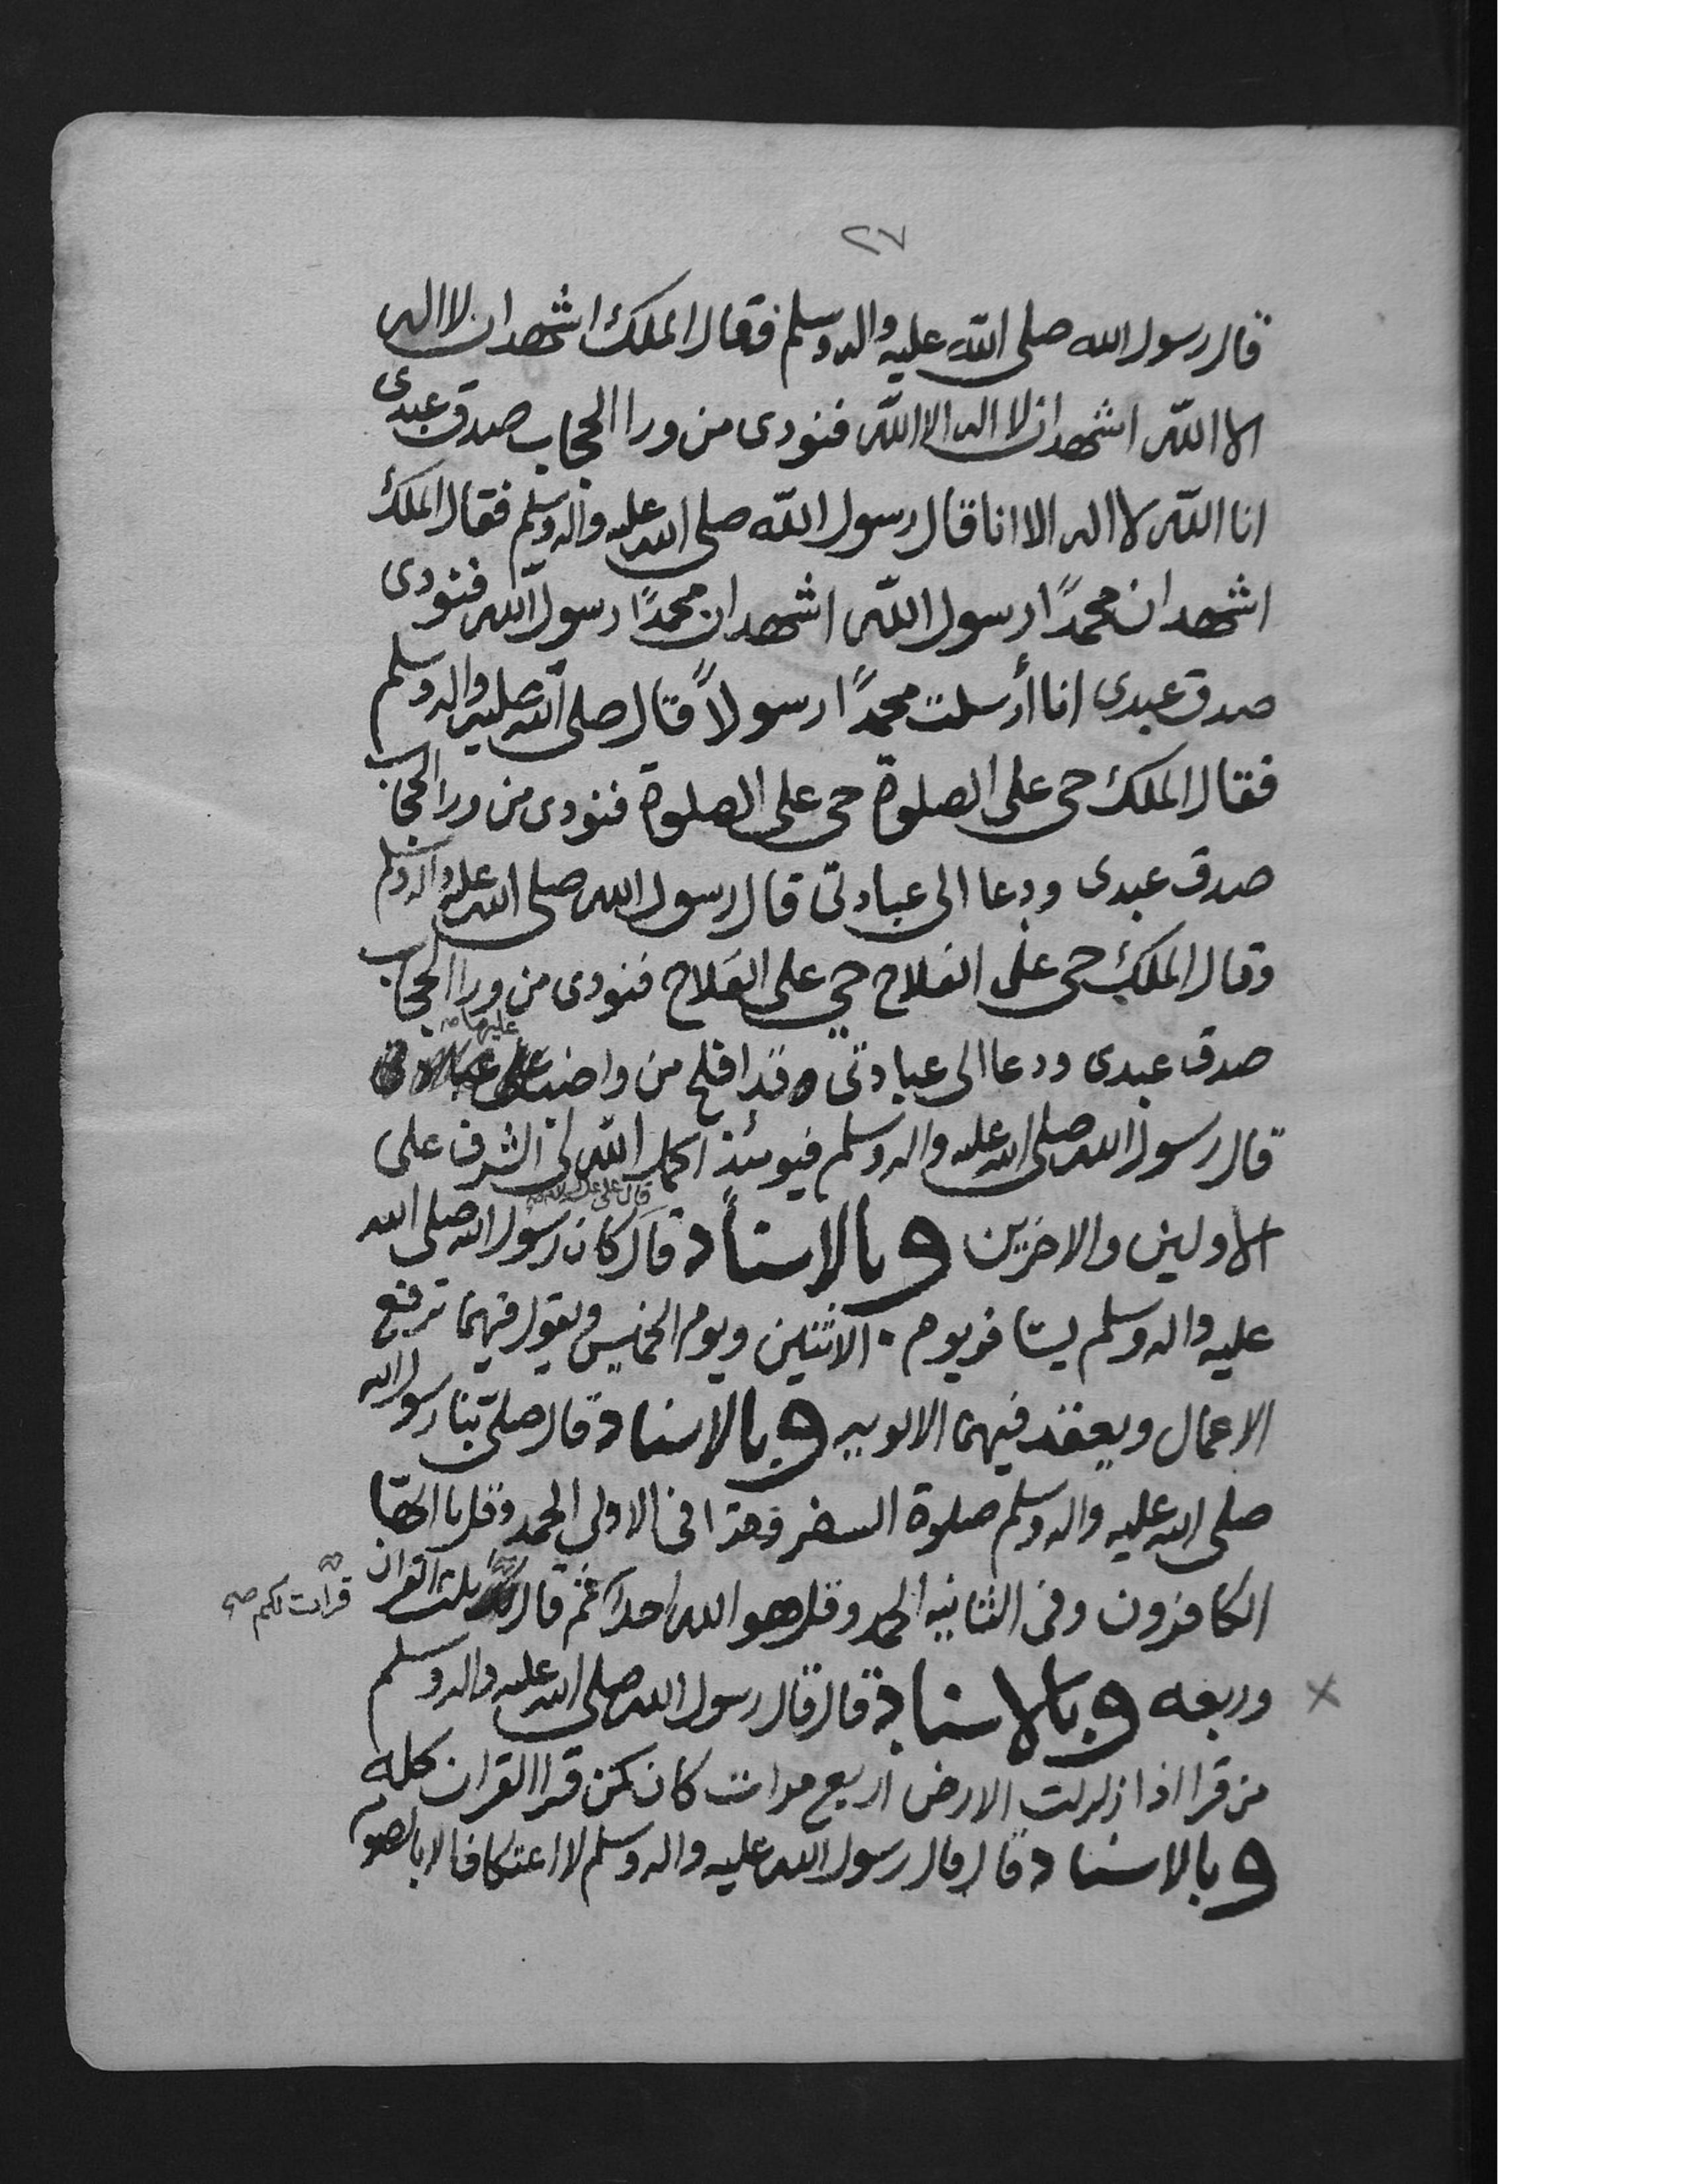 ٢٧
قال رسول الله صلى الله عليه واله وسلم فقال الملك اشهد ان لا اله
الا الله اشهد ان لا اله الا الله فنودى من ورا الحجاب صدق عبدى
انا الله لا اله الا انا قال رسول الله صلى الله عليه واله وسلم فقال الملك
اشهد ان محمدًا رسول الله اشهد ان محمدًا رسول الله فنودى
صدق عبدى انا أرسلت محمدًا رسولاً قال صلى الله عليه واله وسلم
فقال الملك حى على الصلوة حى على الصلوة فنودى من ورا الحجاب
صدق عبدى ودعا الى عبادتى قال رسول الله صلى الله عليه واله وسلم
وقال الملك حى على الفلاح حي على الفلاح فنودى من ورا الحجاب
عليها صح
صدق عبدى ودعا الى عبادتى وقد افلح من واضب
قال رسول الله صلى الله عليه واله وسلم فيومئذ اكمل الله لى الشرف على
قال على عليه السلام
الاولين والاخرين وبالاسناد قال كان رسول الله صلى الله
عليه واله وسلم يسافر يوم الاثنين ويوم الخميس ويقول فيهما ترفع
الاعمال ويعقد فيهما الالويه وبالاسناد قال صلى بنا رسول الله
صلى الله عليه واله وسلم صلوة السفر فقرا فى الاولى الحمد وقل يا ايها
الكافرون وفى الثانيه الحمد وقل هو الله احد ثم قال ثلث القران
قرات لكم صح
وربعه وبالاسناد قال قال رسول الله صلى الله عليه واله وسلم
من قرا اذا زلزلت الارض اربع مرات كان كمن قرا القران كله
وبالاسناد قال قال رسول الله عليه واله وسلم لا اعتكاف الا بالصوم